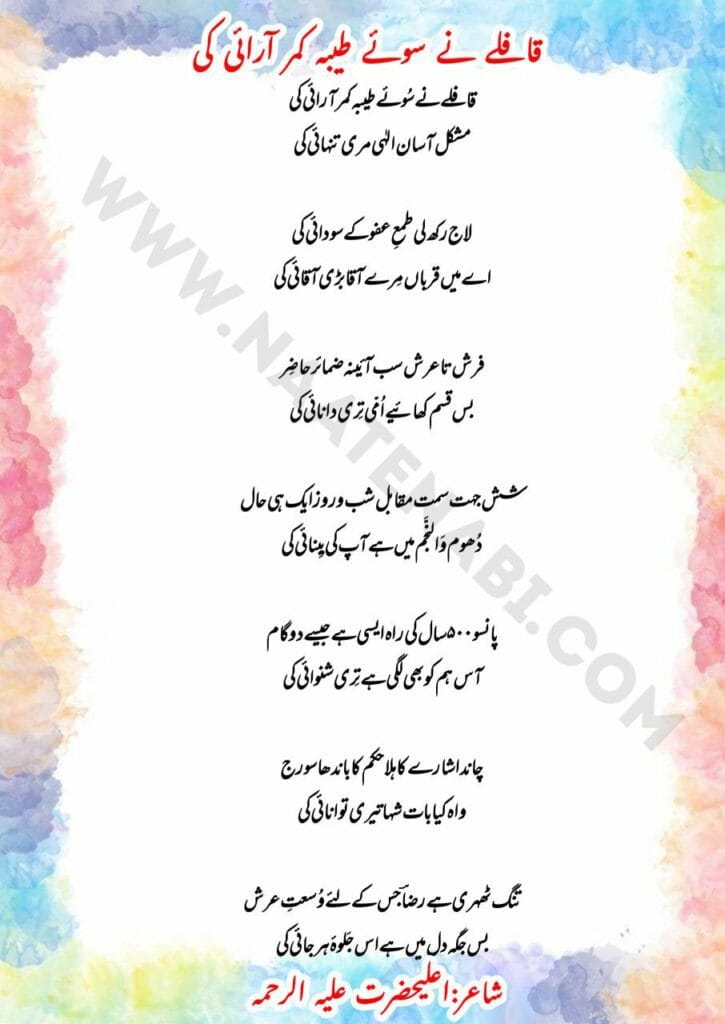 قافلے نے سوئے طیبہ کمر آرائی کی
قافلے نے سُوئے طیبہ کمر آرائی کی
مشکل آسان الٰہی مری تنہائی کی
لاج رکھ لی طمعِ عفو کے سودائی کی
اے میں قرباں مِرے آقا بڑی آقائی کی
فرش تا عرش سب آئینہ ضمائر حاضِر
بس قسم کھائیے اُمّی تِری دانائی کی
شش جہت سمت مقابل شب و روز ایک ہی حال
دُھوم وَالنَّجْم میں ہے آپ کی بِینائی کی
پانسو ۵۰۰ سال کی راہ ایسی ہے جیسے دو گام
آس ہم کو بھی لگی ہے تِری شنوائی کی
چاند اشارے کا ہلا حکم کا باندھا سورج
واہ کیا بات شہا تیری توانائی کی
تنگ ٹھہری ہے رضاؔ جس کے لئے وُسعتِ عرش
بس جگہ دل میں ہے اس جَلوۂ ہر جائی کی
شاعر:اعلیحضرت علیہ الرحمہ
WWW.NAATENABI.COM